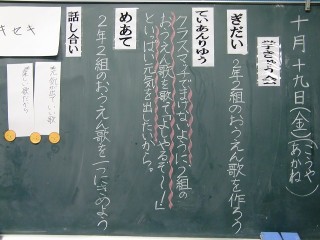 十月十九日(金)(こうや あかね)
学きゅう会
ぎだい
2年2組のおうえん歌を作ろう
ていあんりゆう
クラスマッチでまけないように2組の
おうえん歌を歌って「よしやるぞ〜!」
といっぱい元気を出したいから。
めあて
2年2組のおうえん歌を一つにきめよう
話し合い
元気が出ていい歌
楽しい歌だから
キセキ